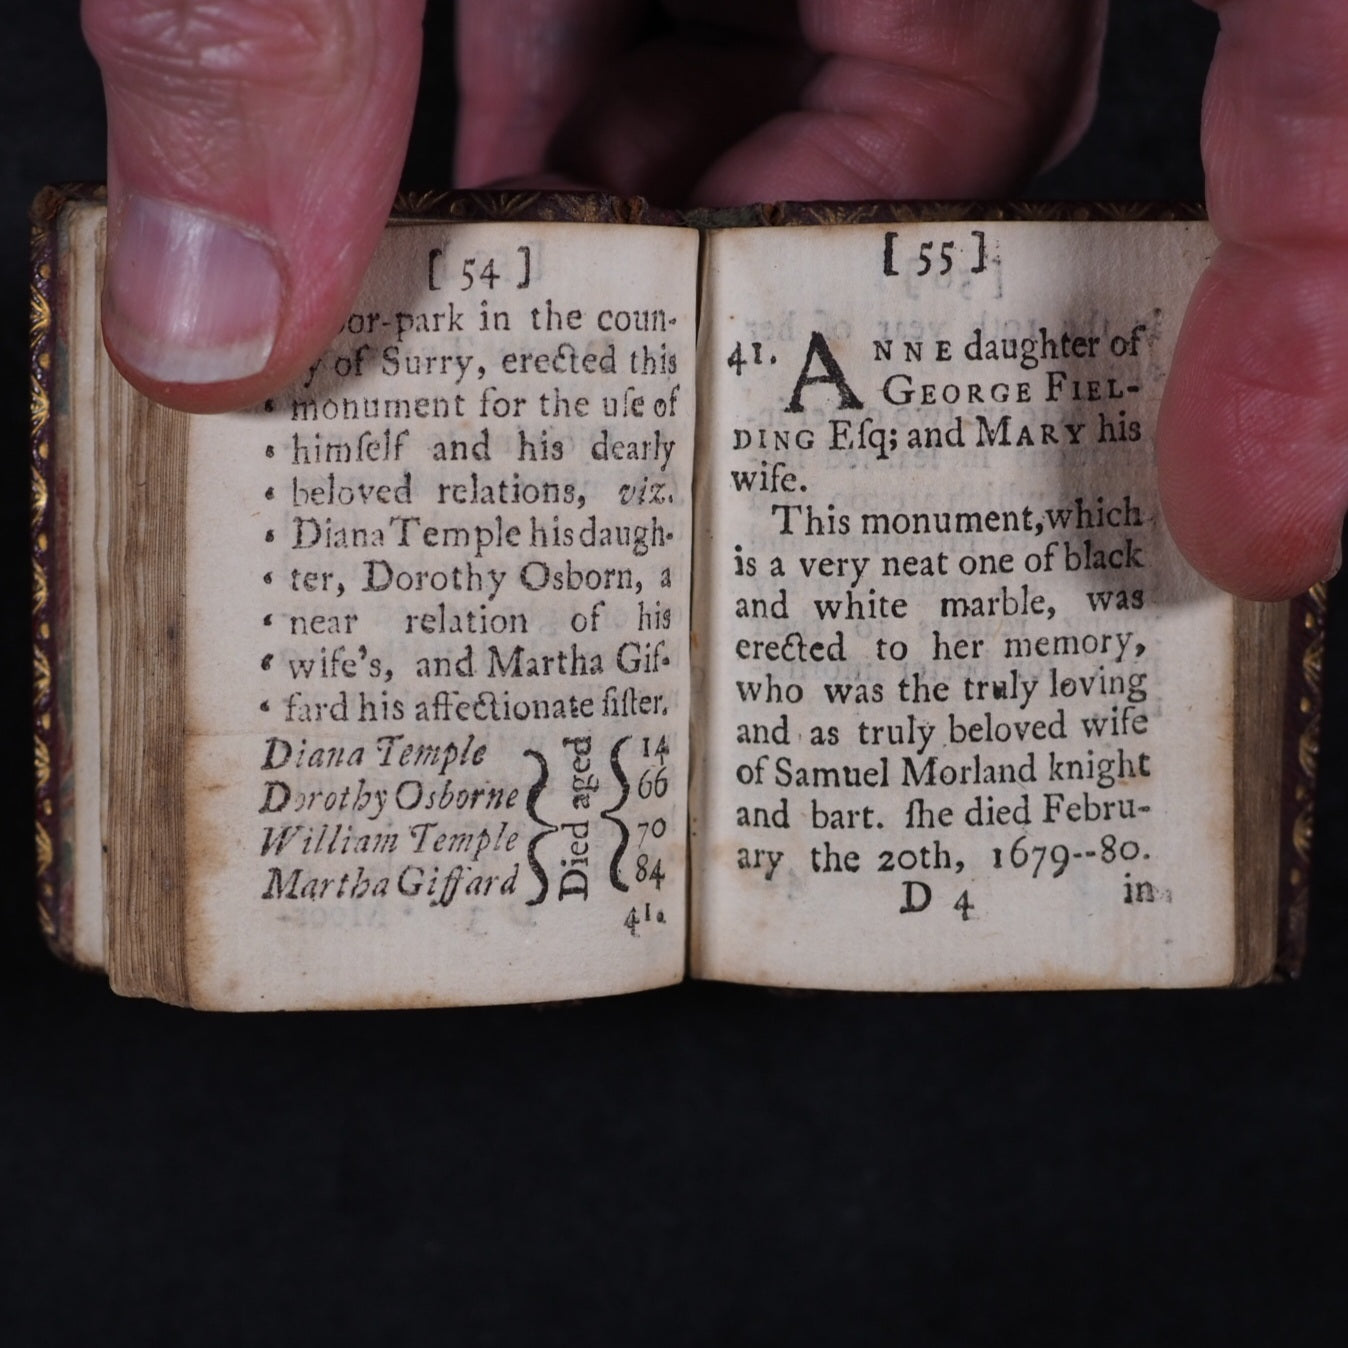 [ 54 ]
or-park in the coun-
y of Surry, erected this
‘ monument for the uſe of
‘ himſelf and his dearly
‘ beloved relations, viz.
‘ Diana Temple his daugh-
‘ ter, Dorothy Osborn, a
‘ near relation of his
‘ wife's, and Martha Gif-
‘ fard his affectionate ſiſter.
Diana Temple } Died aged { 14
Dorothy Osborne 66
William Temple 70
Martha Giffard 84
41.
[ 55 ]
41. ANNE daughter of
GEORGE FIEL-
DING Eſq; and MARY his
wife.
This monument, which
is a very neat one of black
and white marble, was
erected to her memory,
who was the truly loving
and as truly beloved wife
of Samuel Morland knight
and bart. ſhe died Febru-
ary the 20th, 1679--80.
D 4 in